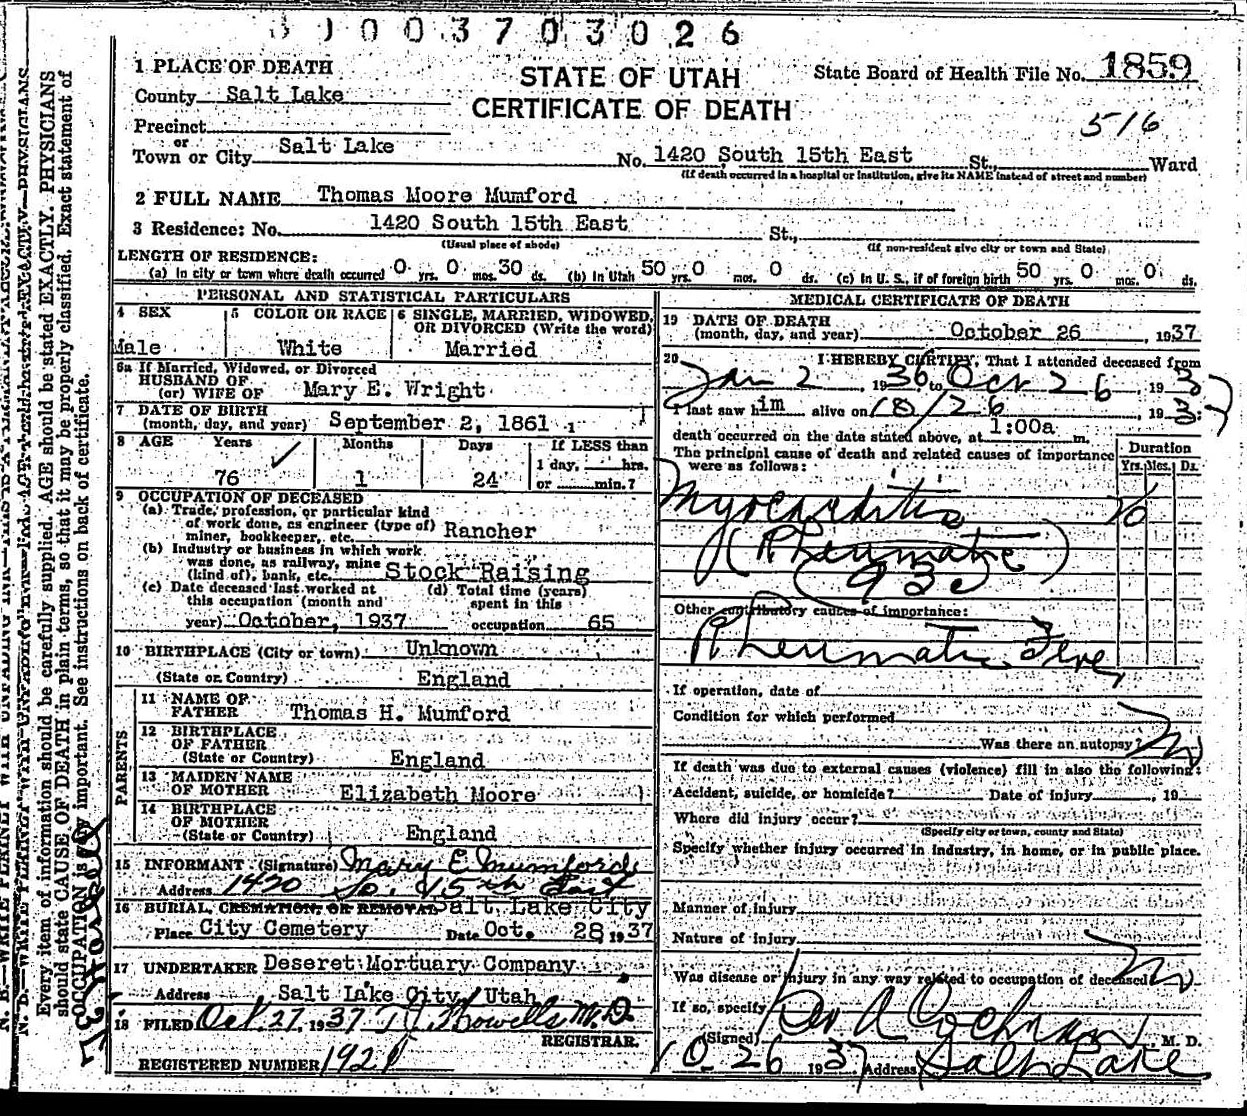 0 0 0 3 7 0 3 0 2 6
1 PLACE OF DEATH
STATE OF UTAH
CERTIFICATE OF DEATH
State Board of Health File No. 1859
516
County Salt Lake
Precinct
or
Town or City Salt Lake No. 1420 South 15th East St., Ward
(If death occurred in a hospital or institution, give its NAME instead of street and number)
2 FULL NAME Thomas Moore Mumford
3 Residence: No. 1420 South 15th East St.,
(Usual place of abode) (If non-resident give city or town and State)
LENGTH OF RESIDENCE:
(a) In city or town where death occurred 0 yrs. 0 mos. 30 ds. (b) In Utah 50 0 mos. 0 ds. (c) In U. S., if of foreign birth 50 yrs. 0 mos. 0 ds.
PERSONAL AND STATISTICAL PARTICULARS
4 SEX
Male
5 COLOR OR RACE
White
6 SINGLE, MARRIED, WIDOWED, OR DIVORCED (Write the word)
Married
6a If Married, Widowed, or Divorced
HUSBAND OF
(or) WIFE OF Mary E. Wright
7 DATE OF BIRTH
(month, day, and year) September 2, 1861
8 AGE Years Months Days If LESS than
76 1 24 1 day, hrs.
or min.?
9 OCCUPATION OF DECEASED
(a) Trade, profession, or particular kind
of work done, as engineer (type of)
miner, bookkeeper, etc. Rancher
(b) Industry or business in which work
was done, as railway, mine
(kind of), bank, etc. Stock Raising
(c) Date deceased last worked at
this occupation (month and
year) October, 1937
(d) Total time (years)
spent in this
occupation 65
10 BIRTHPLACE (City or town) Unknown
(State or Country) England
PARENTS
11 NAME OF
FATHER Thomas H. Mumford
12 BIRTHPLACE
OF FATHER
(State or Country) England
13 MAIDEN NAME
OF MOTHER Elizabeth Moore
14 BIRTHPLACE
OF MOTHER
(State or Country) England
15 INFORMANT (Signature) Mary E. Mumford
Address 1420 So. 15th East
16 BURIAL, CREMATION, OR REMOVAL Salt Lake City
Place City Cemetery Date Oct. 28, 1937
17 UNDERTAKER Deseret Mortuary Company
Address Salt Lake City, Utah
18 FILED Oct. 27, 1937 T.J. Howells M.D.
REGISTRAR.
REGISTERED NUMBER 1921
MEDICAL CERTIFICATE OF DEATH
19 DATE OF DEATH
(month, day, and year) October 26, 1937
20 I HEREBY CERTIFY, That I attended deceased from
Jan 2, 1936 to Oct 26, 1937
I last saw him alive on 10/26, 1937
death occurred on the date stated above, at 1:00a m.
The principal cause of death and related causes of importance
were as follows:
Duration
Yrs. Mos. Ds.
Myocarditis
(Rheumatic)
Other contributory causes of importance:
Rheumatic Fever
If operation, date of
Condition for which performed
Was there an autopsy? No
If death was due to external causes (violence) fill in also the following:
Accident, suicide, or homicide? Date of injury , 19
Where did injury occur?
(Specify city or town, county and State)
Specify whether injury occurred in industry, in home, or in public place.
Manner of injury
Nature of injury
Was disease or injury in any way related to occupation of deceased No
If so, specify
(Signed) A Cochran, M. D.
10-26 1937 Address Salt Lake
Every item of information should be carefully supplied. AGE should be stated EXACTLY. PHYSICIANS
should state CAUSE OF DEATH in plain terms, so that it may be properly classified. Exact statement of
OCCUPATION is very important. See instructions on back of certificate.